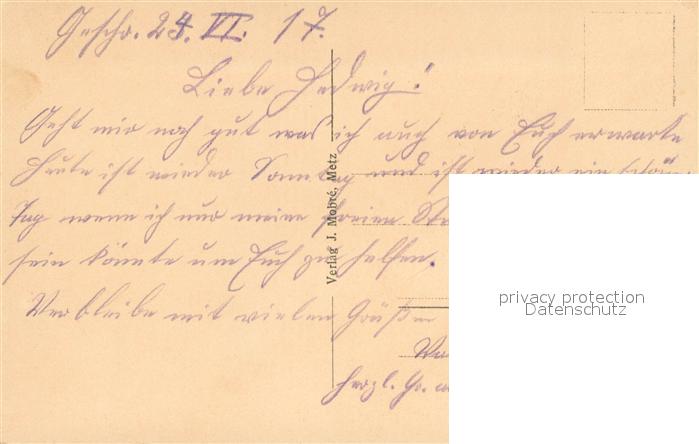 Geschr. 24. VI. 17.
Liebe Hedwig!
Geht mir noch gut was ich auch von Euch erwarte
Heute ist wieder Sonntag und ist wieder ein schöner
Tag wenn ich nur meine freien
sein könnte um Euch zu helfen.
Verbleibe mit vielen Grüßen
herzl. Gr.
Verlag J. Mobré, Metz
privacy protection
Datenschutz